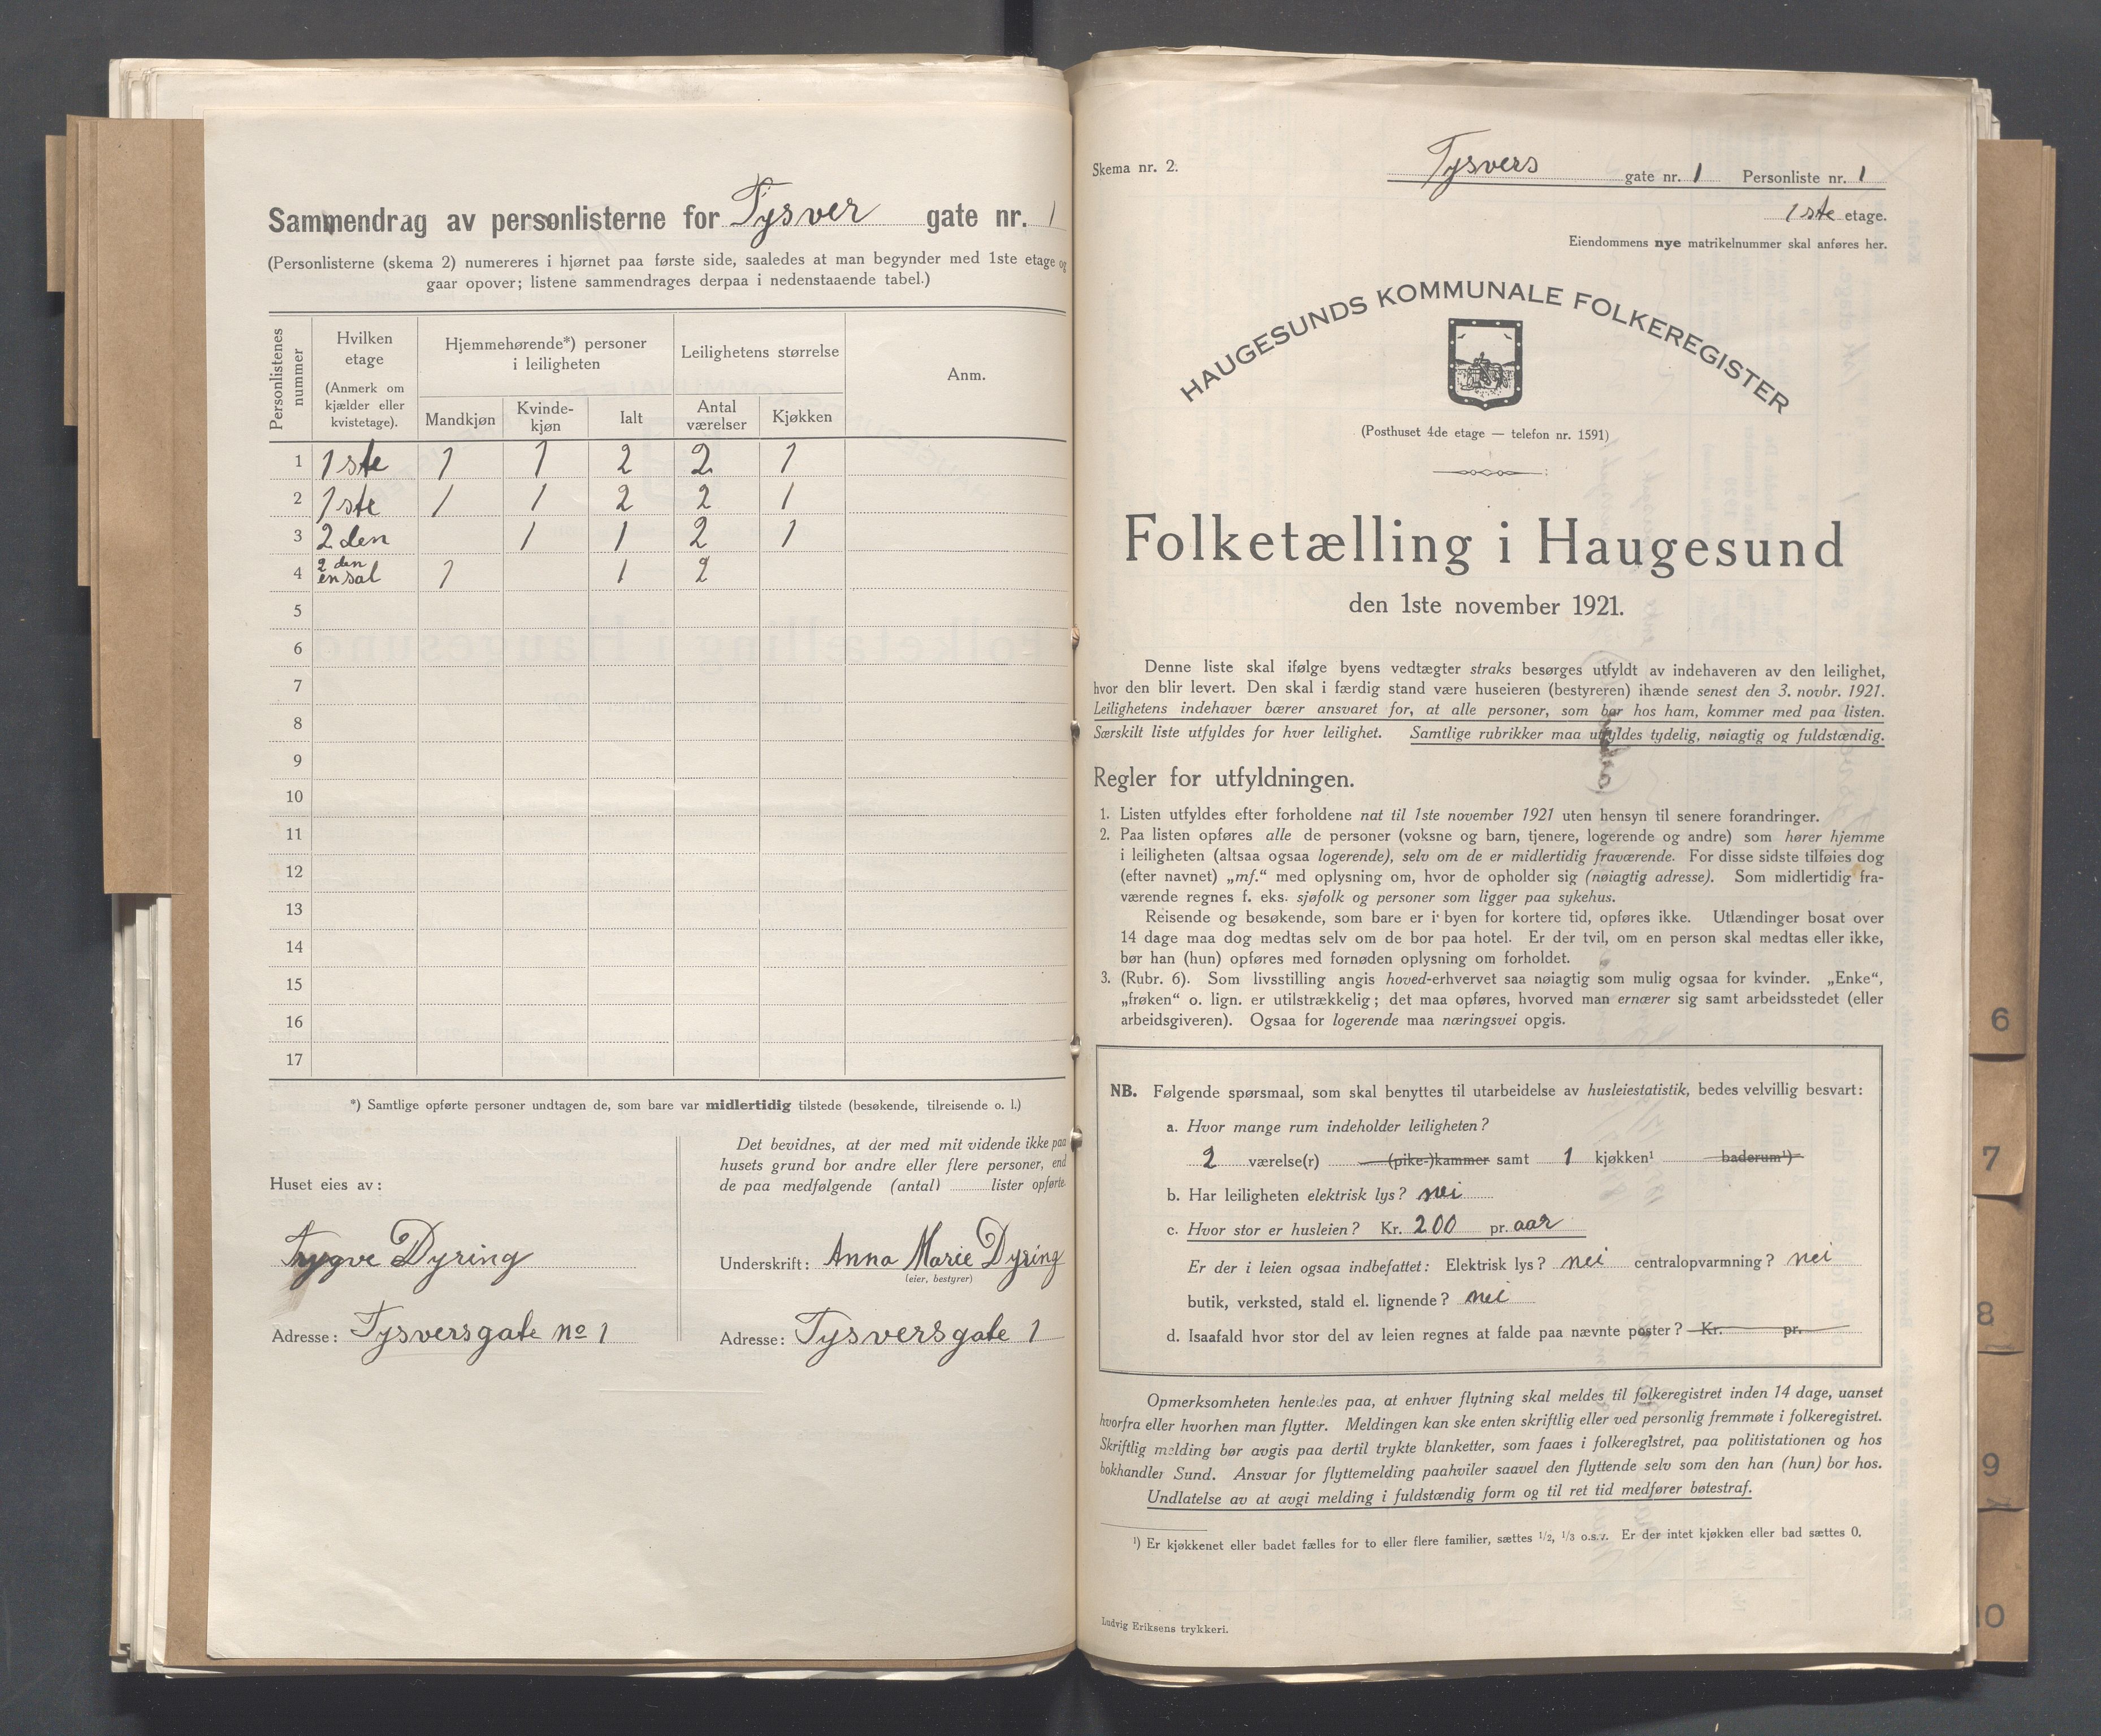 Sammendrag av personlisterne for Tysver gate nr. 1
(Personlisterne (skema 2) numereres i hjørnet paa første side, saaledes at man begynder med 1ste etage og
gaar opover; listene sammendrages derpaa i nedenstaaende tabel.)
Personlistenes nummer
Hvilken etage
(Anmerk om kjælder eller kvistetage).
Hjemmehørende*) personer i leiligheten
Leilighetens størrelse
Anm.
Mandkjøn Kvindekjøn Ialt Antal værelser Kjøkken
1 1ste 1 1 2 2 1
2 1ste 1 1 2 2 1
3 2den 1 1 2 1
4 2den en sal 1 1 2
5
6
7
8
9
10
11
12
13
14
15
16
17
*) Samtlige opførte personer undtagen de, som bare var midlertidig tilstede (besøkende, tilreisende o. l.)
Huset eies av:
Trygve Dyring
Adresse: Tysversgate no 1
Det bevidnes, at der med mit vidende ikke paa
husets grund bor andre eller flere personer, end
de paa medfølgende (antal) lister opførte
Underskrift: Anna Marie Dyring
(eier, bestyrer)
Adresse: Tysversgate 1
Skema nr. 2.
Tysvers gate nr. 1 Personliste nr. 1
1ste etage.
Eiendommens nye matrikelnummer skal anføres her.
HAUGESUNDS KOMMUNALE FOLKEREGISTER
(Posthuset 4de etage — telefon nr. 1591)
Folketælling i Haugesund
den 1ste november 1921.
Denne liste skal ifølge byens vedtægter straks besørges utfyldt av indehaveren av den leilighet,
hvor den blir levert. Den skal i færdig stand være huseieren (bestyreren) ihænde senest den 3. novbr. 1921.
Leilighetens indehaver bærer ansvaret for, at alle personer, som bor hos ham, kommer med paa listen.
Særskilt liste utfyldes for hver leilighet. Samtlige rubrikker maa utfyldes tydelig, nøiagtig og fuldstændig.
Regler for utfyldningen.
1. Listen utfyldes efter forholdene nat til 1ste november 1921 uten hensyn til senere forandringer.
2. Paa listen opføres alle de personer (voksne og barn, tjenere, logerende og andre) som hører hjemme
i leiligheten (altsaa ogsaa logerende), selv om de er midlertidig fraværende. For disse sidste tilføies dog
(efter navnet) „mf.“ med oplysning om, hvor de opholder sig (nøiagtig adresse). Som midlertidig fra-
værende regnes f. eks. sjøfolk og personer som ligger paa sykehus.
Reisende og besøkende, som bare er i byen for kortere tid, opføres ikke. Utlændinger bosat over
14 dage maa dog medtas selv om de bor paa hotel. Er der tvil, om en person skal medtas eller ikke,
bør han (hun) opføres med fornøden oplysning om forholdet.
3. (Rubr. 6). Som livsstilling angis hoved-erhvervet saa nøiagtig som mulig ogsaa for kvinder. „Enke“,
„frøken“ o. lign. er utilstrækkelig; det maa opføres, hvorved man ernærer sig samt arbeidsstedet (eller
arbeidsgiveren). Ogsaa for logerende maa næringsvei opgis.
NB. Følgende spørsmaal, som skal benyttes til utarbeidelse av husleiestatistik, bedes velvillig besvart:
a. Hvor mange rum indeholder leiligheten?
2 værelse(r) (pike-)kammer samt 1 kjøkken¹ baderum¹)
b. Har leiligheten elektrisk lys? nei
c. Hvor stor er husleien? Kr. 200 pr. aar
Er der i leien ogsaa indbefattet: Elektrisk lys? nei centralopvarmning? nei
butik, verksted, stald el. lignende? nei
d. Isaafald hvor stor del av leien regnes at falde paa nævnte poster? Kr. pr.
Opmerksomheten henledes paa, at enhver flytning skal meldes til folkeregistret inden 14 dage, uanset
hvorfra eller hvorhen man flytter. Meldingen kan ske enten skriftlig eller ved personlig fremmøte i folkeregistret.
Skriftlig melding bør avgis paa dertil trykte blanketter, som faaes i folkeregistret, paa politistationen og hos
bokhandler Sund. Ansvar for flyttemelding paahviler saavel den flyttende selv som den han (hun) bor hos.
Undlatelse av at avgi melding i fuldstændig form og til ret tid medfører bøtestraf.
¹) Er kjøkkenet eller badet fælles for to eller flere familier, sættes 1/2, 1/3 o.s.v. Er der intet kjøkken eller bad sættes 0.
Ludvig Eriksens trykkeri.
6
7
8
9
10